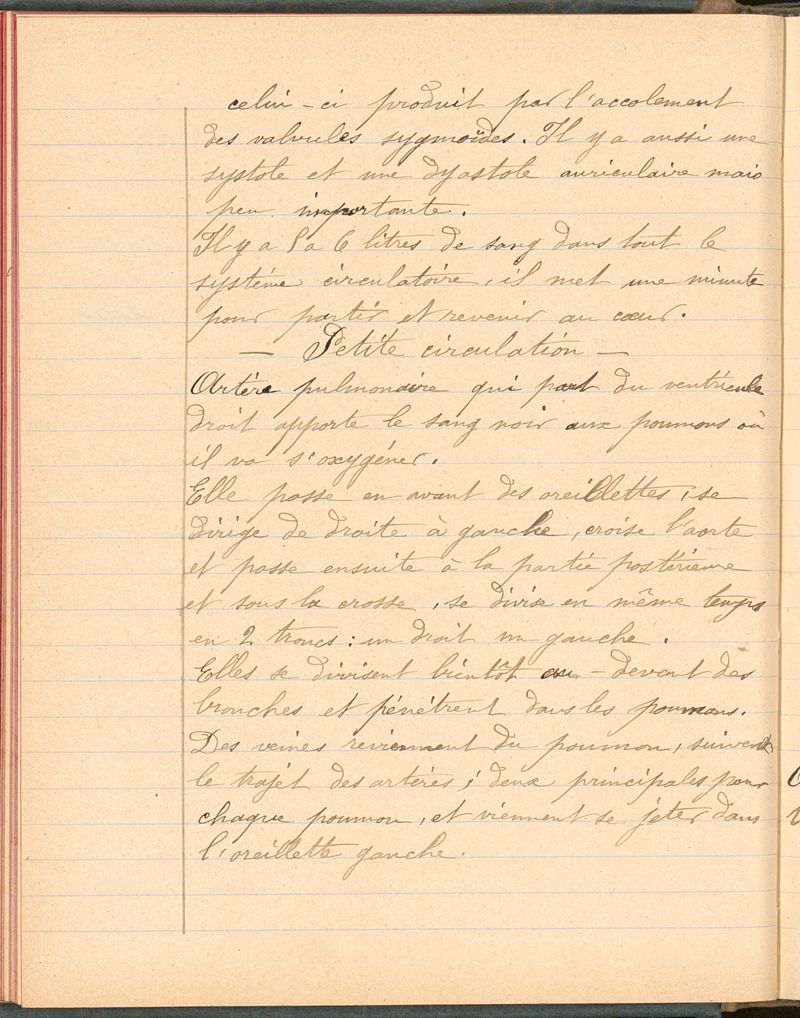 celui-ci produit par l'accolement
des valvules sygmoïdes. Il y a aussi une
systole et une dyastole auriculaire mais
peu importante.
Il y a 5 a 6 litres de sang dans tout le
système circulatoire, il met une minute
pour partir et revenir au cœur.
— Petite circulation —
Artère pulmonaire qui part du ventricule
droit apporte le sang noir aux poumons où
il va s'oxygéner.
Elle passe en avant des oreillettes, se
dirige de droite à gauche, croise l'aorte
et passe ensuite à la partie postérieure
et sous la crosse, se divise en même temps
en 2 troncs : un droit un gauche.
Elles se divisent bientôt au-devant des
bronches et pénétrent dans les poumons.
Des veines reviennent du poumon, suivent
le trajet des artères ; deux principales pour
chaque poumon, et viennent se jeter dans
l'oreillette gauche.